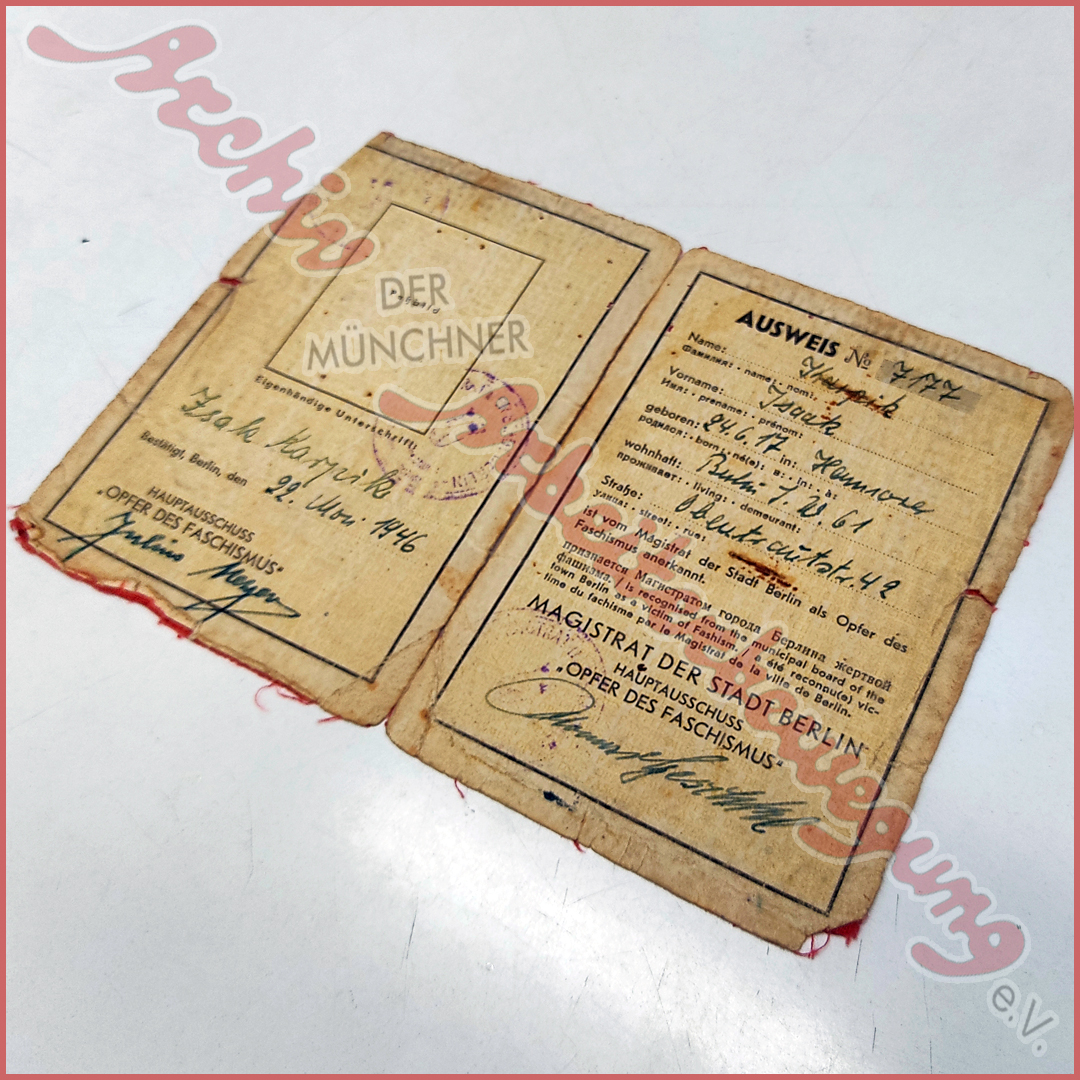 Archiv
DER
MÜNCHNER
Arbeiterbewegung
e.V.
Eigenhändige Unterschrift:
Isak Karpik
Bestätigt, Berlin, den 22. Mai 1946
HAUPTAUSSCHUSS
„OPFER DES FASCHISMUS"
Julius Meyer
AUSWEIS № 7177
Name: Karpik
Фамилия: · name: · nom:
Vorname: Isaak
Имя: · prename: · prénom:
geboren: 24.6.17 in:
родился: · born: · né(e): в: · in: · à:
wohnhaft: Berlin 61
проживает: · living: · demeurant:
Straße: Obentrautstr. 42
улица: · street: · rue:
ist vom Magistrat der Stadt Berlin als Opfer des
Faschismus anerkannt.
признается Магистратом города Берлина жертвой
фашизма. / is recognised from the municipal board of the
town Berlin as a victim of Fashism. / a été reconnu(e) vic-
time du fachisme par le Magistrat de la ville de Berlin.
MAGISTRAT DER STADT BERLIN
HAUPTAUSSCHUSS
„OPFER DES FASCHISMUS"